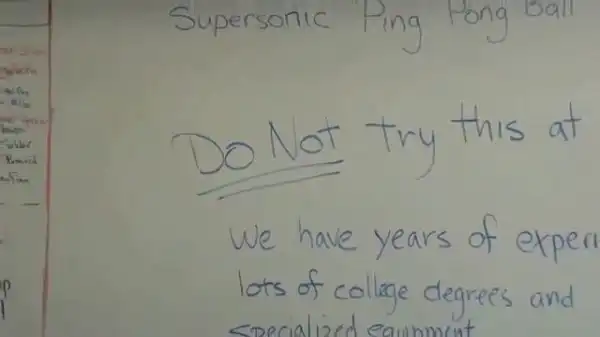 Supersonic Ping Pong Ball
Do Not Try this at
We have years of experi
lots of college degrees and
specialized equipment